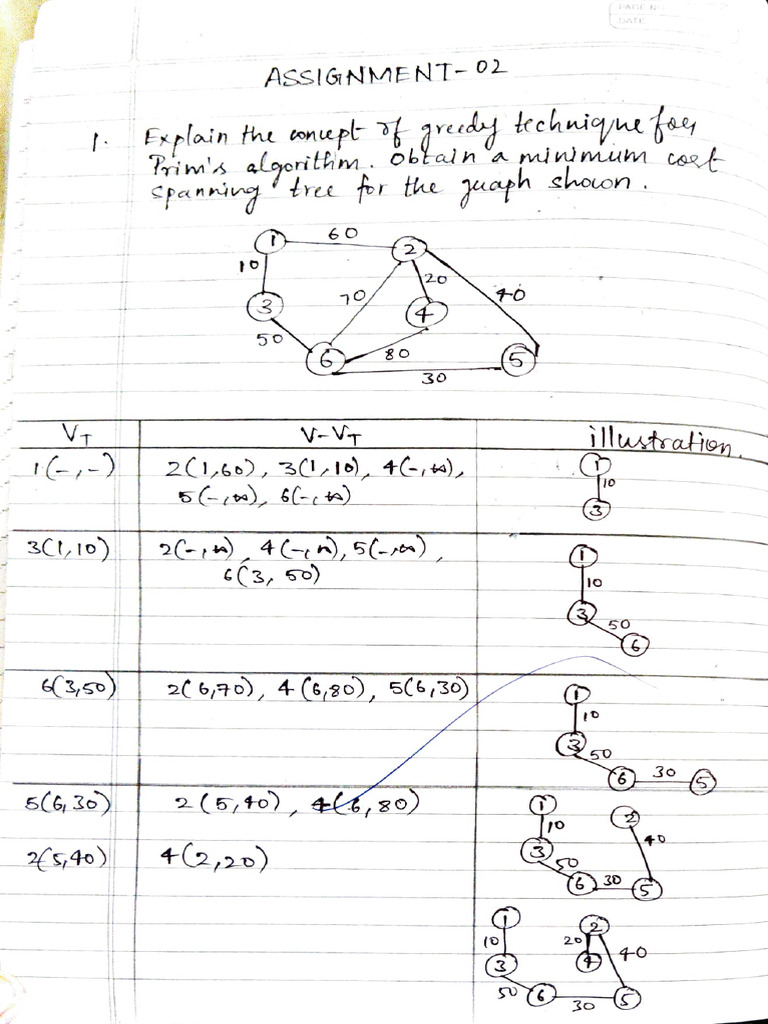 PAGE N
DATE
ASSIGNMENT-02
1. Explain the concept of greedy technique for
Prim's algorithm. Obtain a minimum cost
spanning tree for the graph shown.
1 60 2
10 20 40
3 70 4
50 80
6 30 5
VT V-VT illustration.
1(-,-) 2(1,60), 3(1,10), 4(-,∞),
5(-,∞), 6(-,∞)
1
10
3
3(1,10) 2(-,∞), 4(-,∞), 5(-,∞),
6(3, 50)
1
10
3 50
6
6(3,50) 2(6,70), 4(6,80), 5(6,30)
1
10
3 50
6 30 5
5(6,30) 2(5,40), 4(6,80)
1 2
10 40
3 50
6 30 5
2(5,40) 4(2,20)
1 2
10 20 40
3 4
50 6 30 5